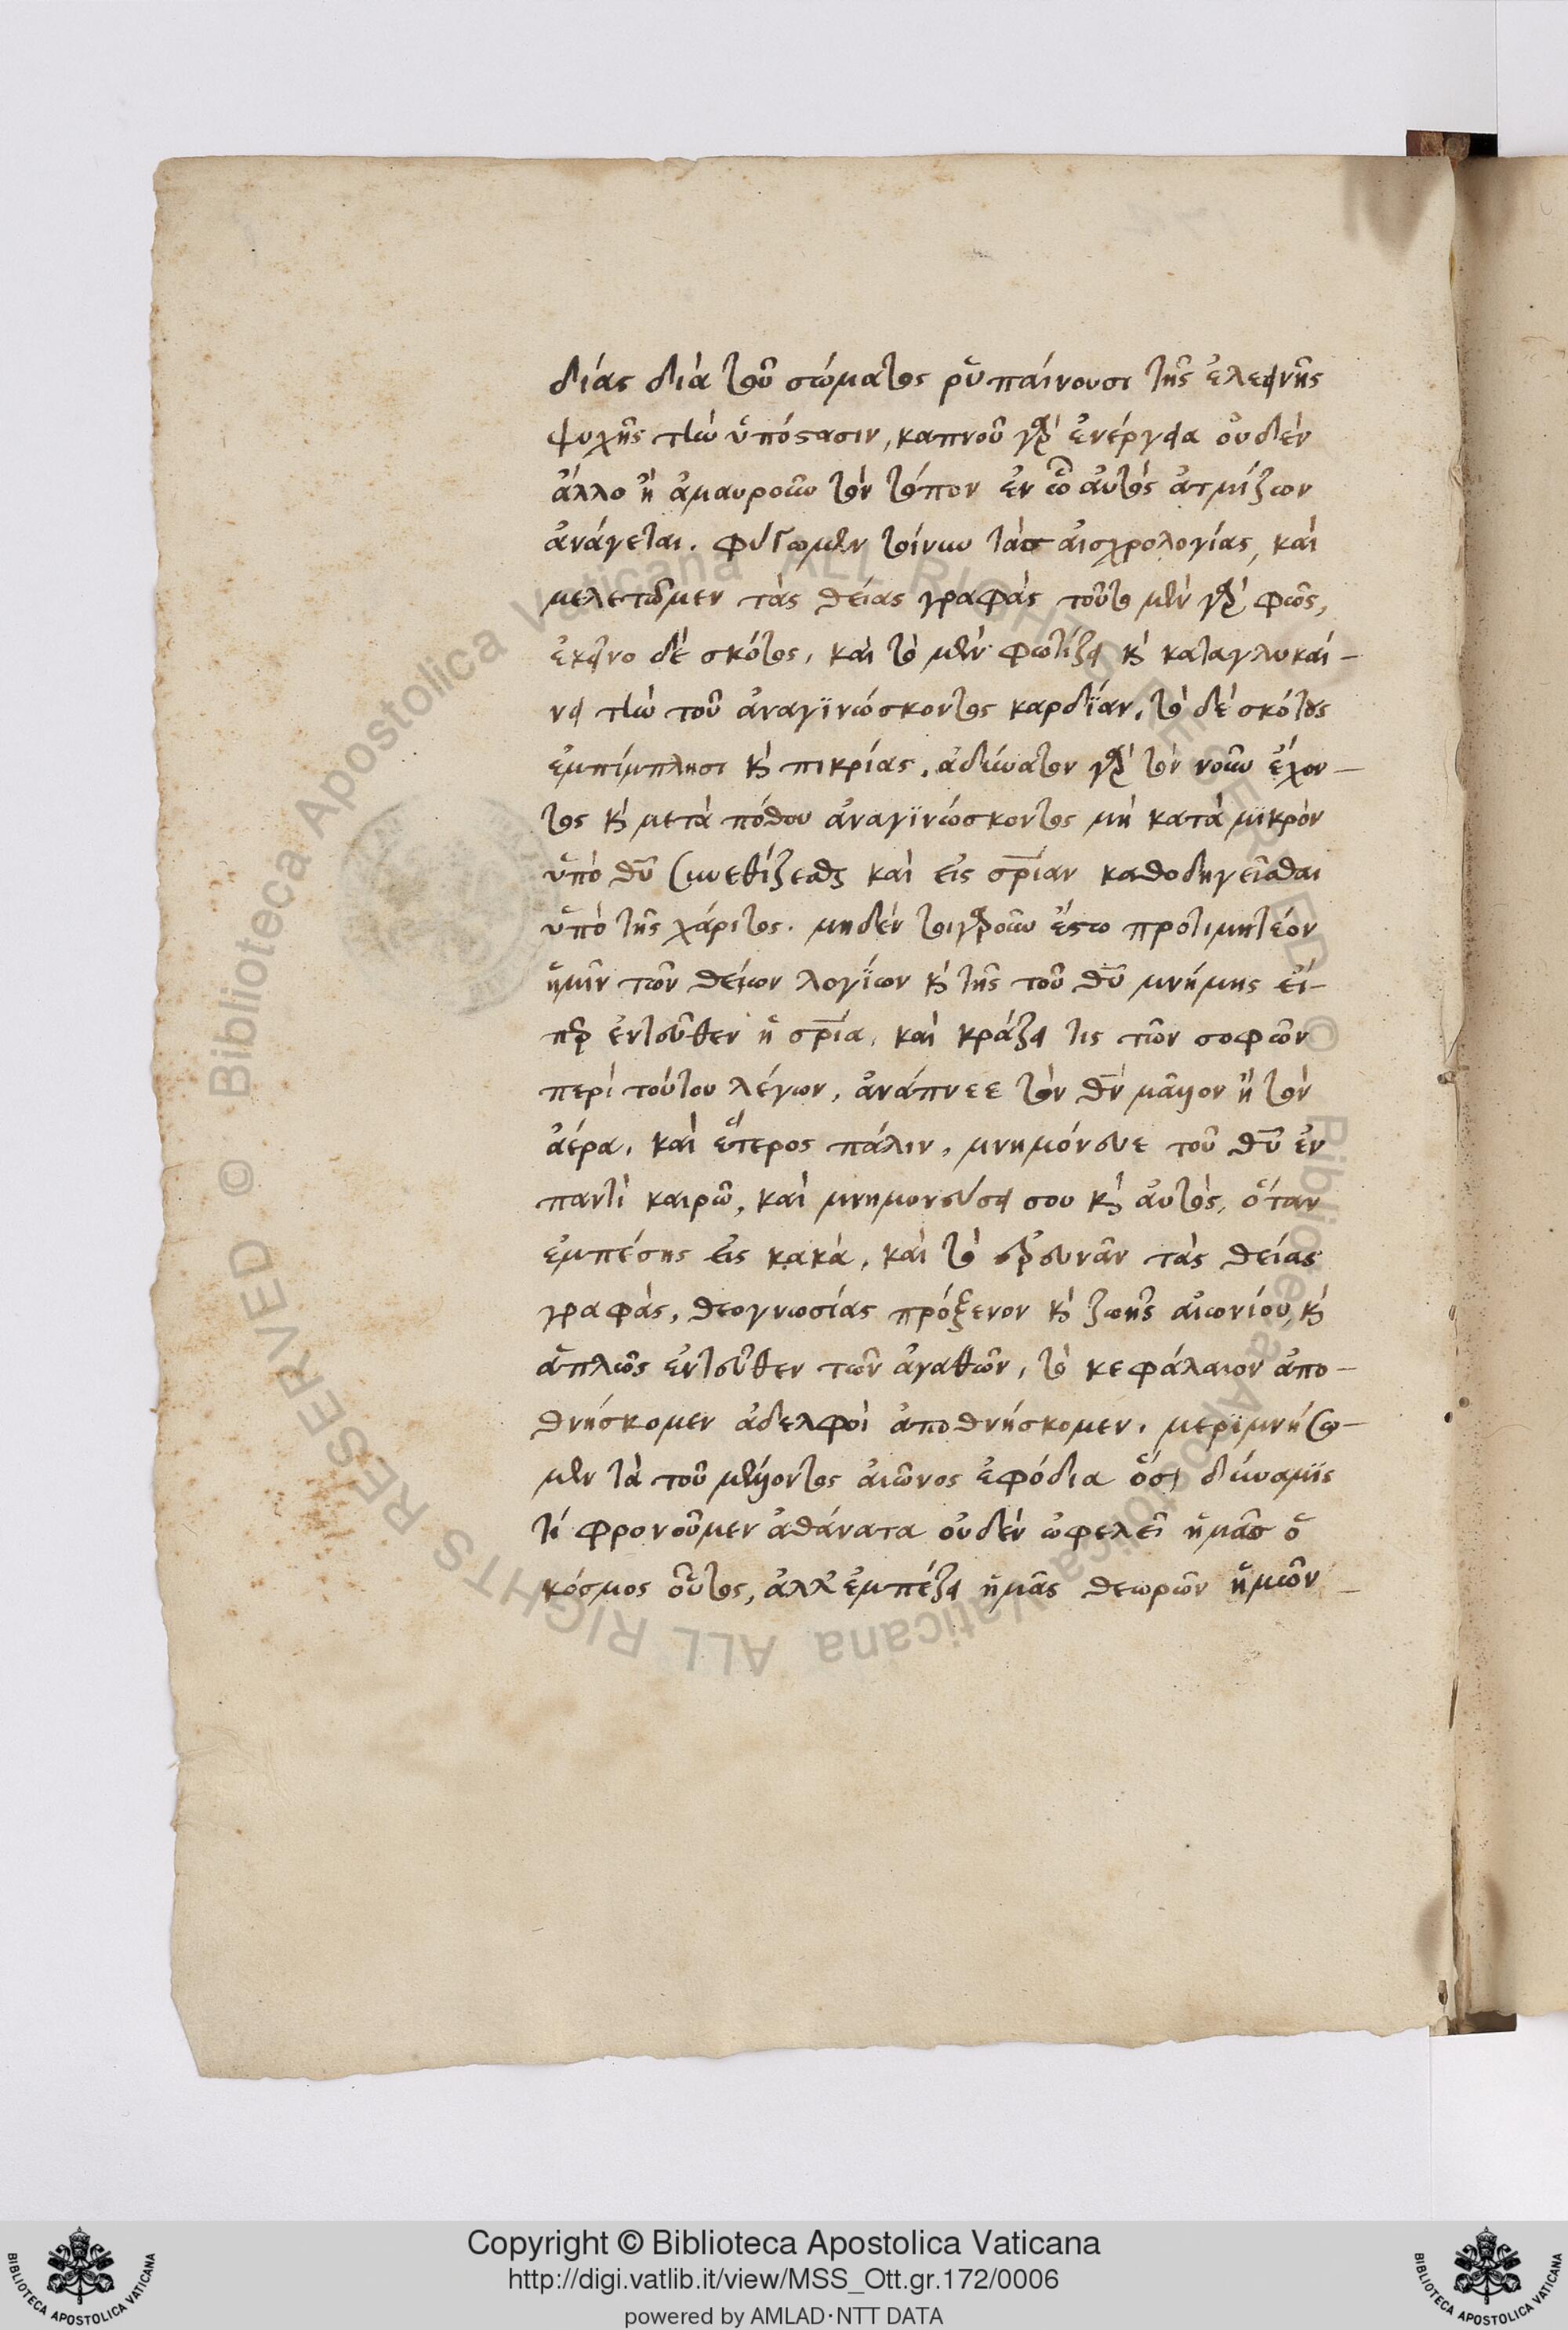 δίας διὰ τοῦ στόματος ῥυπαίνουσι τῆς ἐλεεινῆς
ψυχῆς τὴν ὑπόστασιν, καπνοῦ γὰρ ἐνέργεια οὐδὲν
ἄλλο ἢ ἀμαυροῦν τὸν τόπον ἐν ᾧ αὐτὸς ἀτμίζων
ἀνάγεται. φύγωμεν τοίνυν τὰς αἰσχρολογίας, καὶ
μελετῶμεν τὰς θείας γραφὰς τοῦτο μὲν γὰρ φῶς,
ἐκεῖνο δὲ σκότος, καὶ τὸ μὲν φωτίζει κ̀ καταγλυκαί-
νει τὴν τοῦ ἀναγϊνώσκοντος καρδΐαν, τὸ δὲ σκότους
ἐμπίμπλησι κ̀ πικρίας, ἀδύνατον γὰρ τὸν νοῦν ἔχον-
τος κ̀ μετὰ πόθου ἀναγϊνώσκοντος μὴ κατὰ μϊκρὸν
ὑπὸ θῦ συνεθίζεσθαι καὶ εἰς σρ̅ίαν καθοδηγεῖσθαι
ὑπὸ τῆς χάριτος. μηδὲν τοιγαροῦν ἔστω προτιμητέον
ἡμῖν τῶν θείων λογΐων κ̀ τῆς τοῦ θῦ μνήμης εἴ-
περ ἐντεῦθεν ἡ σρ̅ία, καὶ κράζει τις τῶν σοφῶν
περὶ τούτου λέγων, ἀνάπνεε τὸν θν̅ μᾶλλον ἢ τὸν
ἀέρα, καὶ ἕτερος πάλιν, μνημόνευε τοῦ θῦ ἐν
παντὶ καιρῶ, καὶ μνημονεύσει σου κ̀ αὐτὸς, ὅταν
ἐμπέσης εἰς κακὰ, καὶ τὸ ἐρευνᾶν τὰς θείας
γραφὰς, θεογνωσίας πρόξενον κ̀ ζωῆς αἰωνίου, κ̀
ἁπλῶς ἐντεῦθεν τῶν ἀγαθῶν, τὸ κεφάλαιον ἀπο-
θνήσκομεν ἀδελφοὶ ἀποθνήσκομεν, μερϊμνήσω-
μεν τὰ τοῦ μέλλοντος αἰῶνος ἐφόδια ὅση δύναμϊς
τί φρονοῦμεν ἀθάνατα οὐδὲν ὠφελεῖ ἡμᾶς ὁ
κόσμος οὗτος, ἀλλ' ἐμπέζει ἡμᾶς θεωρῶν ἡμῶν-
Copyright © Biblioteca Apostolica Vaticana
http://digi.vatlib.it/view/MSS_Ott.gr.172/0006
powered by AMLAD·NTT DATA